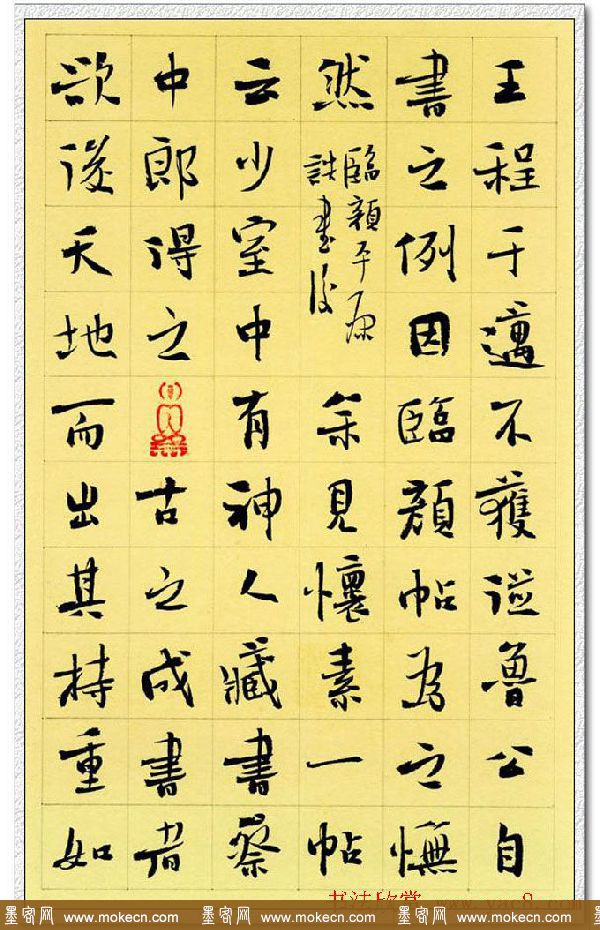 王程于邁不獲從魯公自
書之例因臨顏帖為之憮
然
臨顏平原
誄書後
余見懷素一帖
云少室中有神人藏書蔡
中郎得之
古之成書者
欲後天地而出其持重如
墨客网 www.mokecn.com 墨客网 www.mokecn.com 墨客网 www.mokecn.com